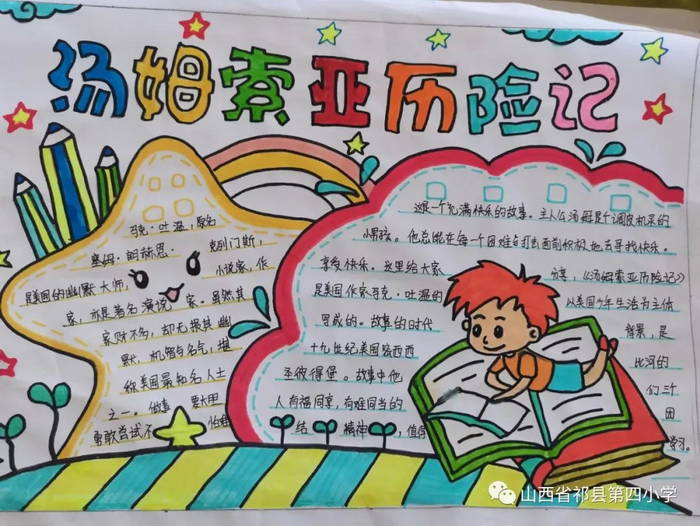 汤姆索亚历险记
马克·吐温，原名
塞缪·朗赫恩· 克列门斯，
是美国的幽默大师， 小说家，作
家，亦是著名 演说 家。虽然其
家财不多，却无损其幽
默、机智与名气，堪
称美国最知名人士
之一。
勇敢尝试不
这是一个充满快乐的故事。主人公汤姆是个调皮机灵的
小男孩。他总能在每个困难与打击面前积极地去寻找快乐。
享受快乐。这里给大家 分享，《汤姆索亚历险记》
是美国作家马克·吐温的 以美国少年生活为主体
写成的。故事的时代 背景，是
十九世纪美国密西西 比河的
圣彼得堡。故事中他 们三个
人有福同享，有难同当的 团
结 精神 ，值得 学习。
山西省祁县第四小学